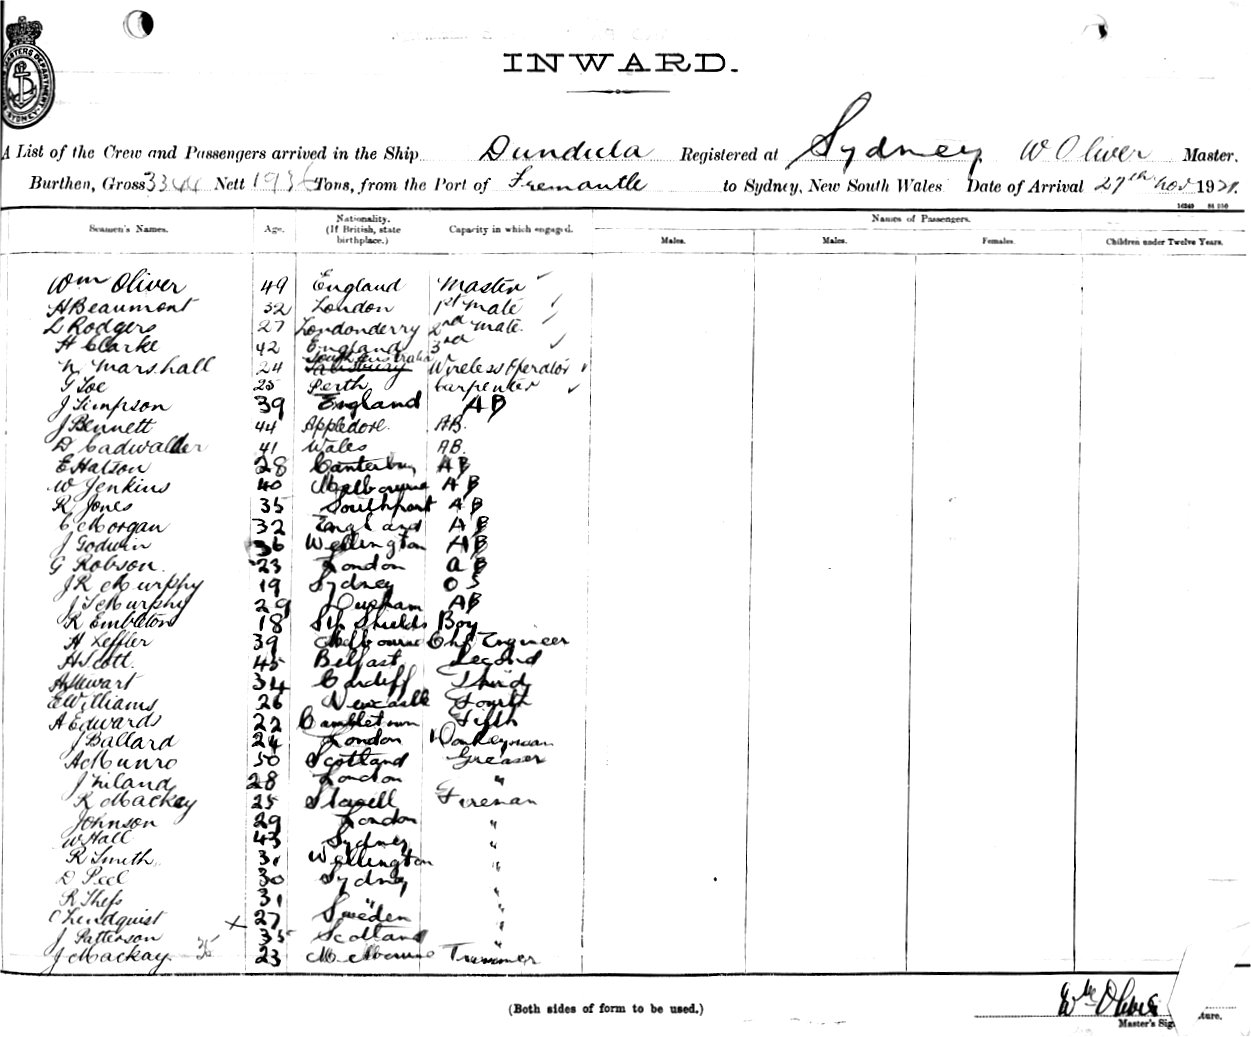 INWARD.
A List of the Crew and Passengers arrived in the Ship Dundula Registered at Sydney W Oliver Master,
Burthen, Gross 3344 Nett 1936 Tons, from the Port of Fremantle to Sydney, New South Wales Date of Arrival 27th Nov 1921.
Seamen's Names. Age. Nationality. (If British, state birthplace.) Capacity in which engaged. Names of Passengers.
Males. Males. Females. Children under Twelve Years.
Wm Oliver 49 England Master
H Beaumont 32 London 1st Mate
L Rodgers 27 Londonderry 2nd Mate
H Clarke 42 England 3rd
N Marshall 24 South Australia Salisbury Wireless Operator
G Loe 25 Perth Carpenter
J Simpson 39 England AB
J Bennett 44 Appledore AB.
D Cadwallder 41 Wales AB.
E Hatson 28 Canterbury AB
W Jenkins 40 Melbourne AB
R Jones 35 Southport AB
C Morgan 32 England AB
J Godwin 36 Wellington AB
G Robson. 23 London AB
J R Murphy 19 Sydney OS
J S Murphy 29 Durham AB
R Embleton 18 Sth Shields Boy
H Leffler 39 Melbourne Chf Engineer
H Scott. 45 Belfast Second
A Stewart 34 Cardiff Third
E Williams 26 Newcastle Fourth
A Edwards 22 Cambletown Fifth
J Ballard 24 London Donkeyman
A Munro 50 Scotland Greaser
J Niland 28 London "
R Mackay 25 Stawell Fireman
Johnson 29 London "
W Hall 43 Sydney "
R Smith 31 Wellington "
D Peel 30 Sydney "
R 31 " "
C Lindquist 27 Sweden "
J Patterson 35 Scotland "
J Mackay 23 Melbourne Trimmer
(Both sides of form to be used.)
Wm Oliver
Master's Sig ture.